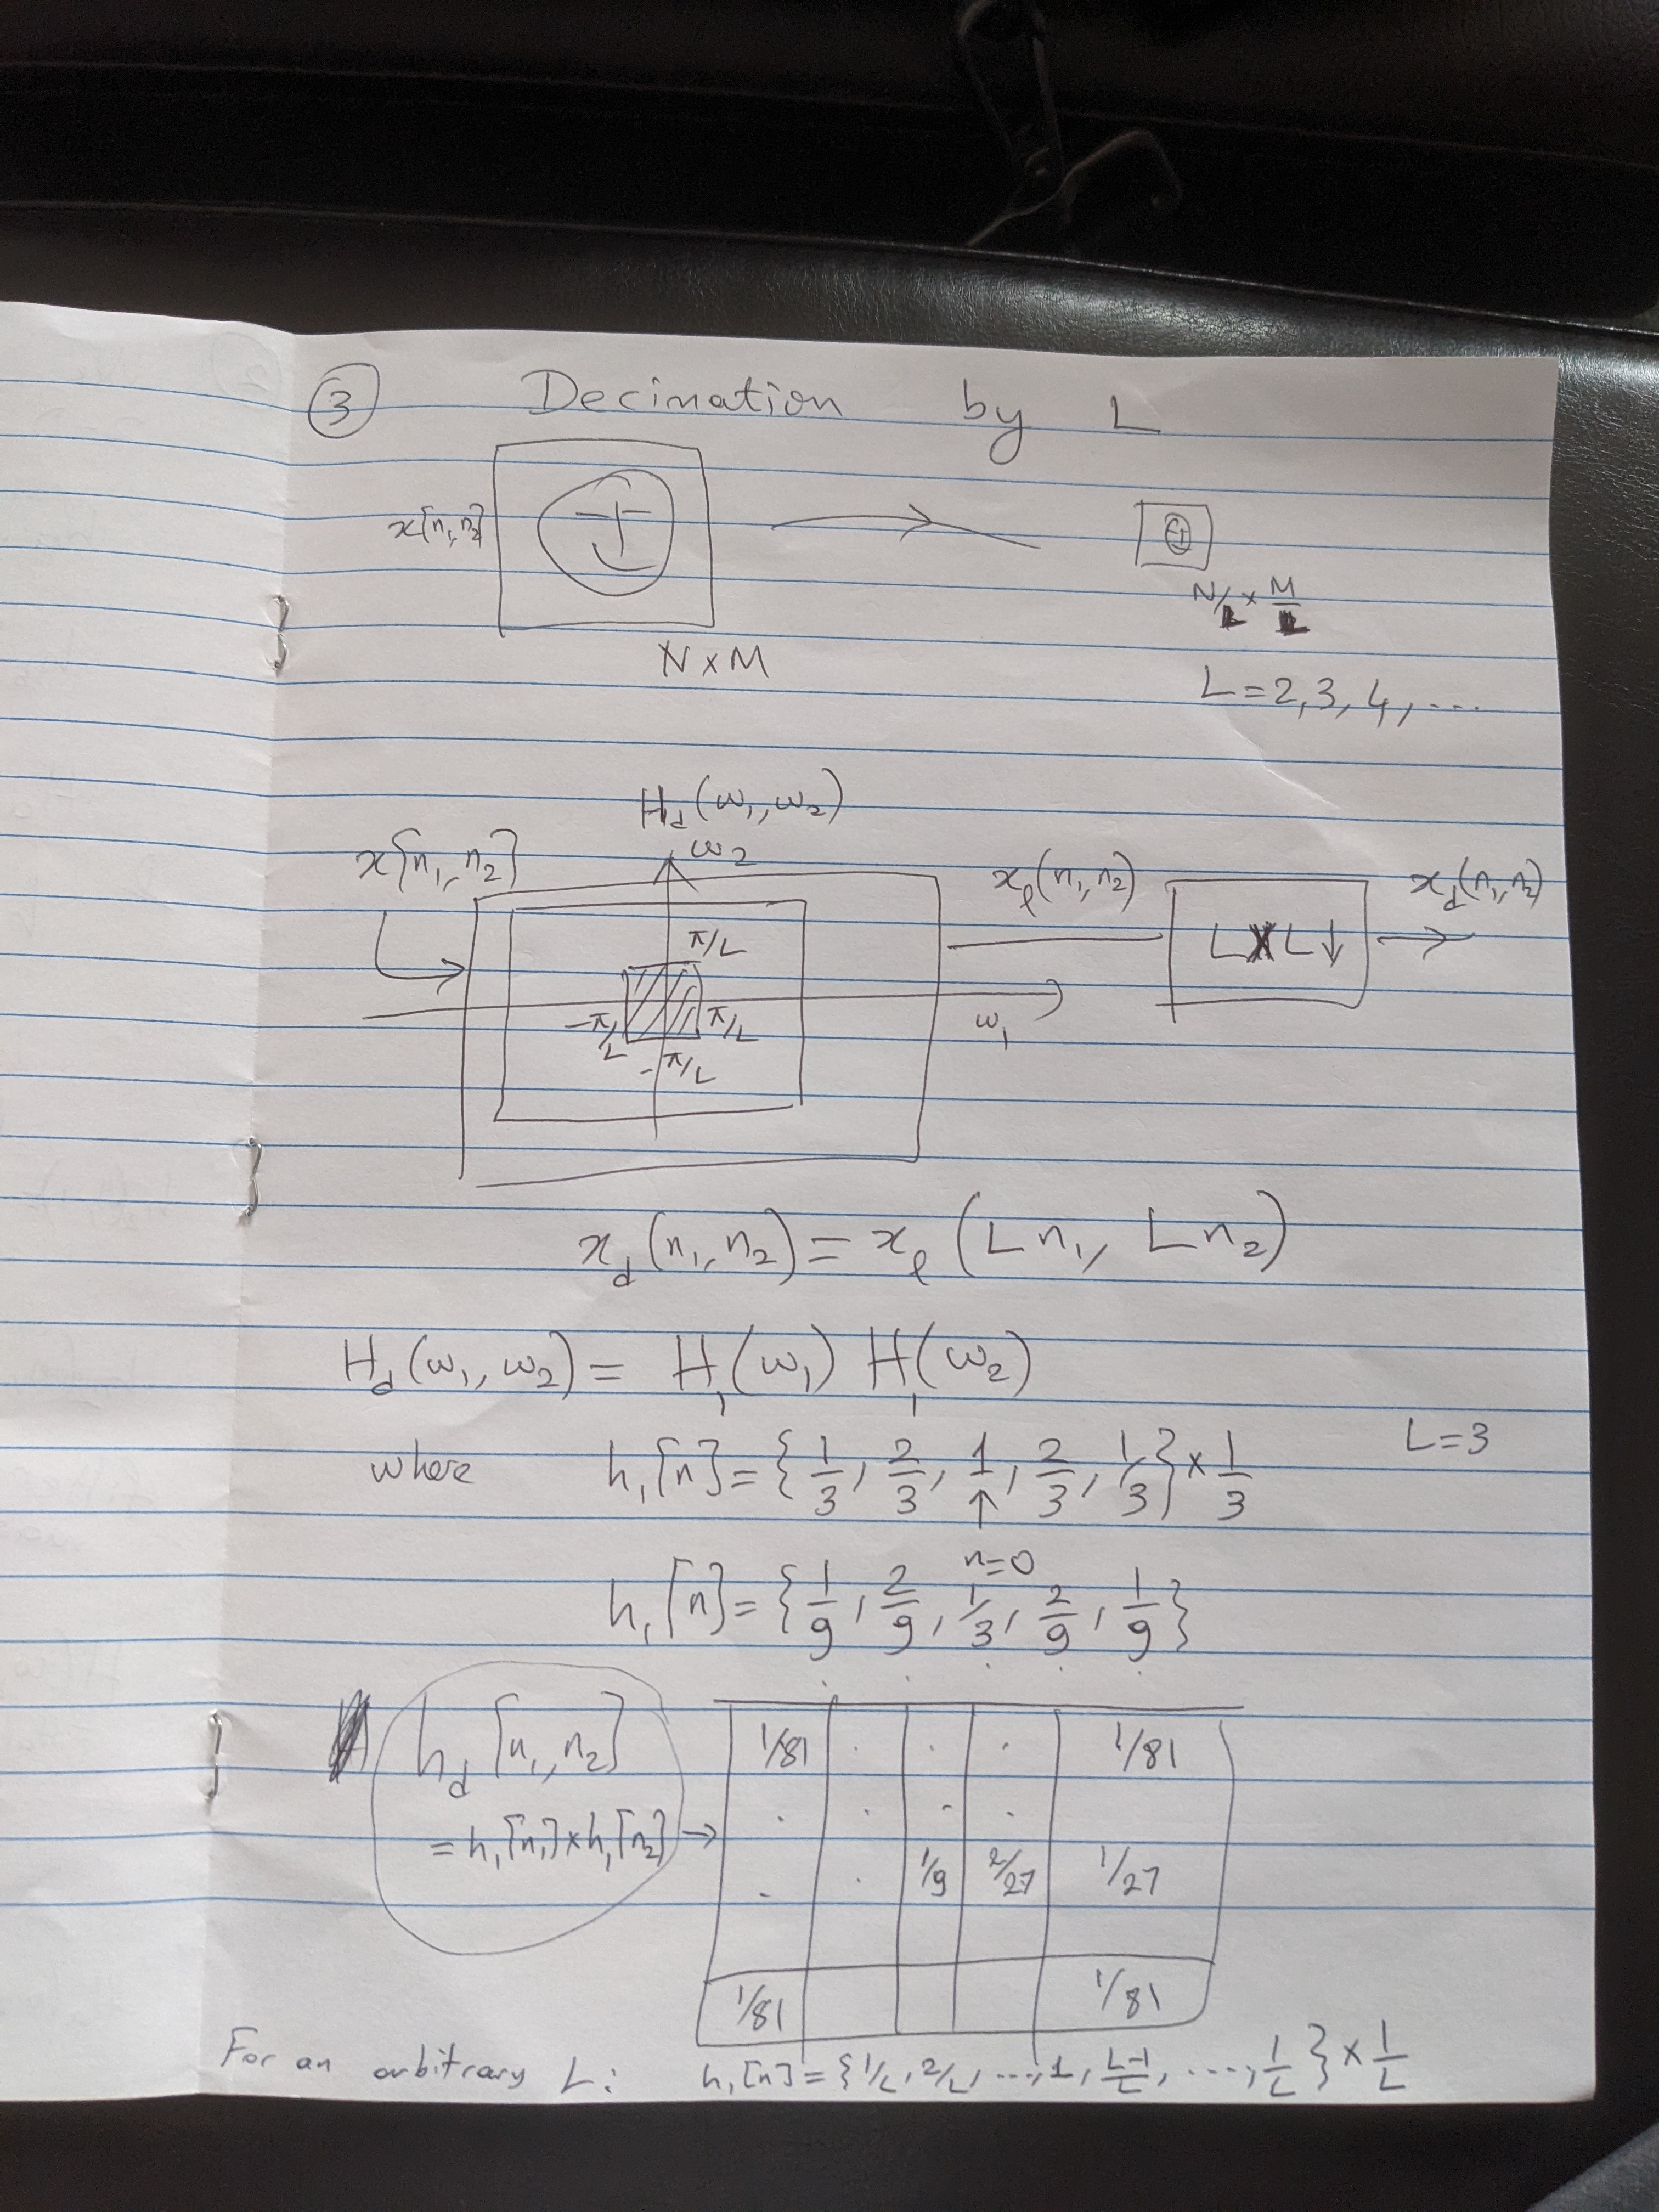 ③ Decimation by L
x[n₁,n₂]
N/L × M/L
N×M
L=2,3,4,...
H_d(ω₁,ω₂)
x[n₁,n₂] ω₂ x_l(n₁,n₂) x_d(n₁,n₂)
π/L L×L↓
-π/L π/L ω₁
-π/L
x_d(n₁,n₂) = x_l(Ln₁, Ln₂)
H_d(ω₁,ω₂) = H₁(ω₁) H₁(ω₂)
where h₁[n] = {1/3, 2/3, 1, 2/3, 1/3} × 1/3 L=3
↑
n=0
h₁[n] = {1/9, 2/9, 1/3, 2/9, 1/9}
h_d[n₁,n₂] 1/81 . . . 1/81
. . . .
= h₁[n₁]×h₁[n₂] → . . 1/9 2/27 1/27
1/81 1/81
For an arbitrary L: h₁[n] = {1/L, 2/L, ..., 1, L-1/L, ..., 1/L} × 1/L